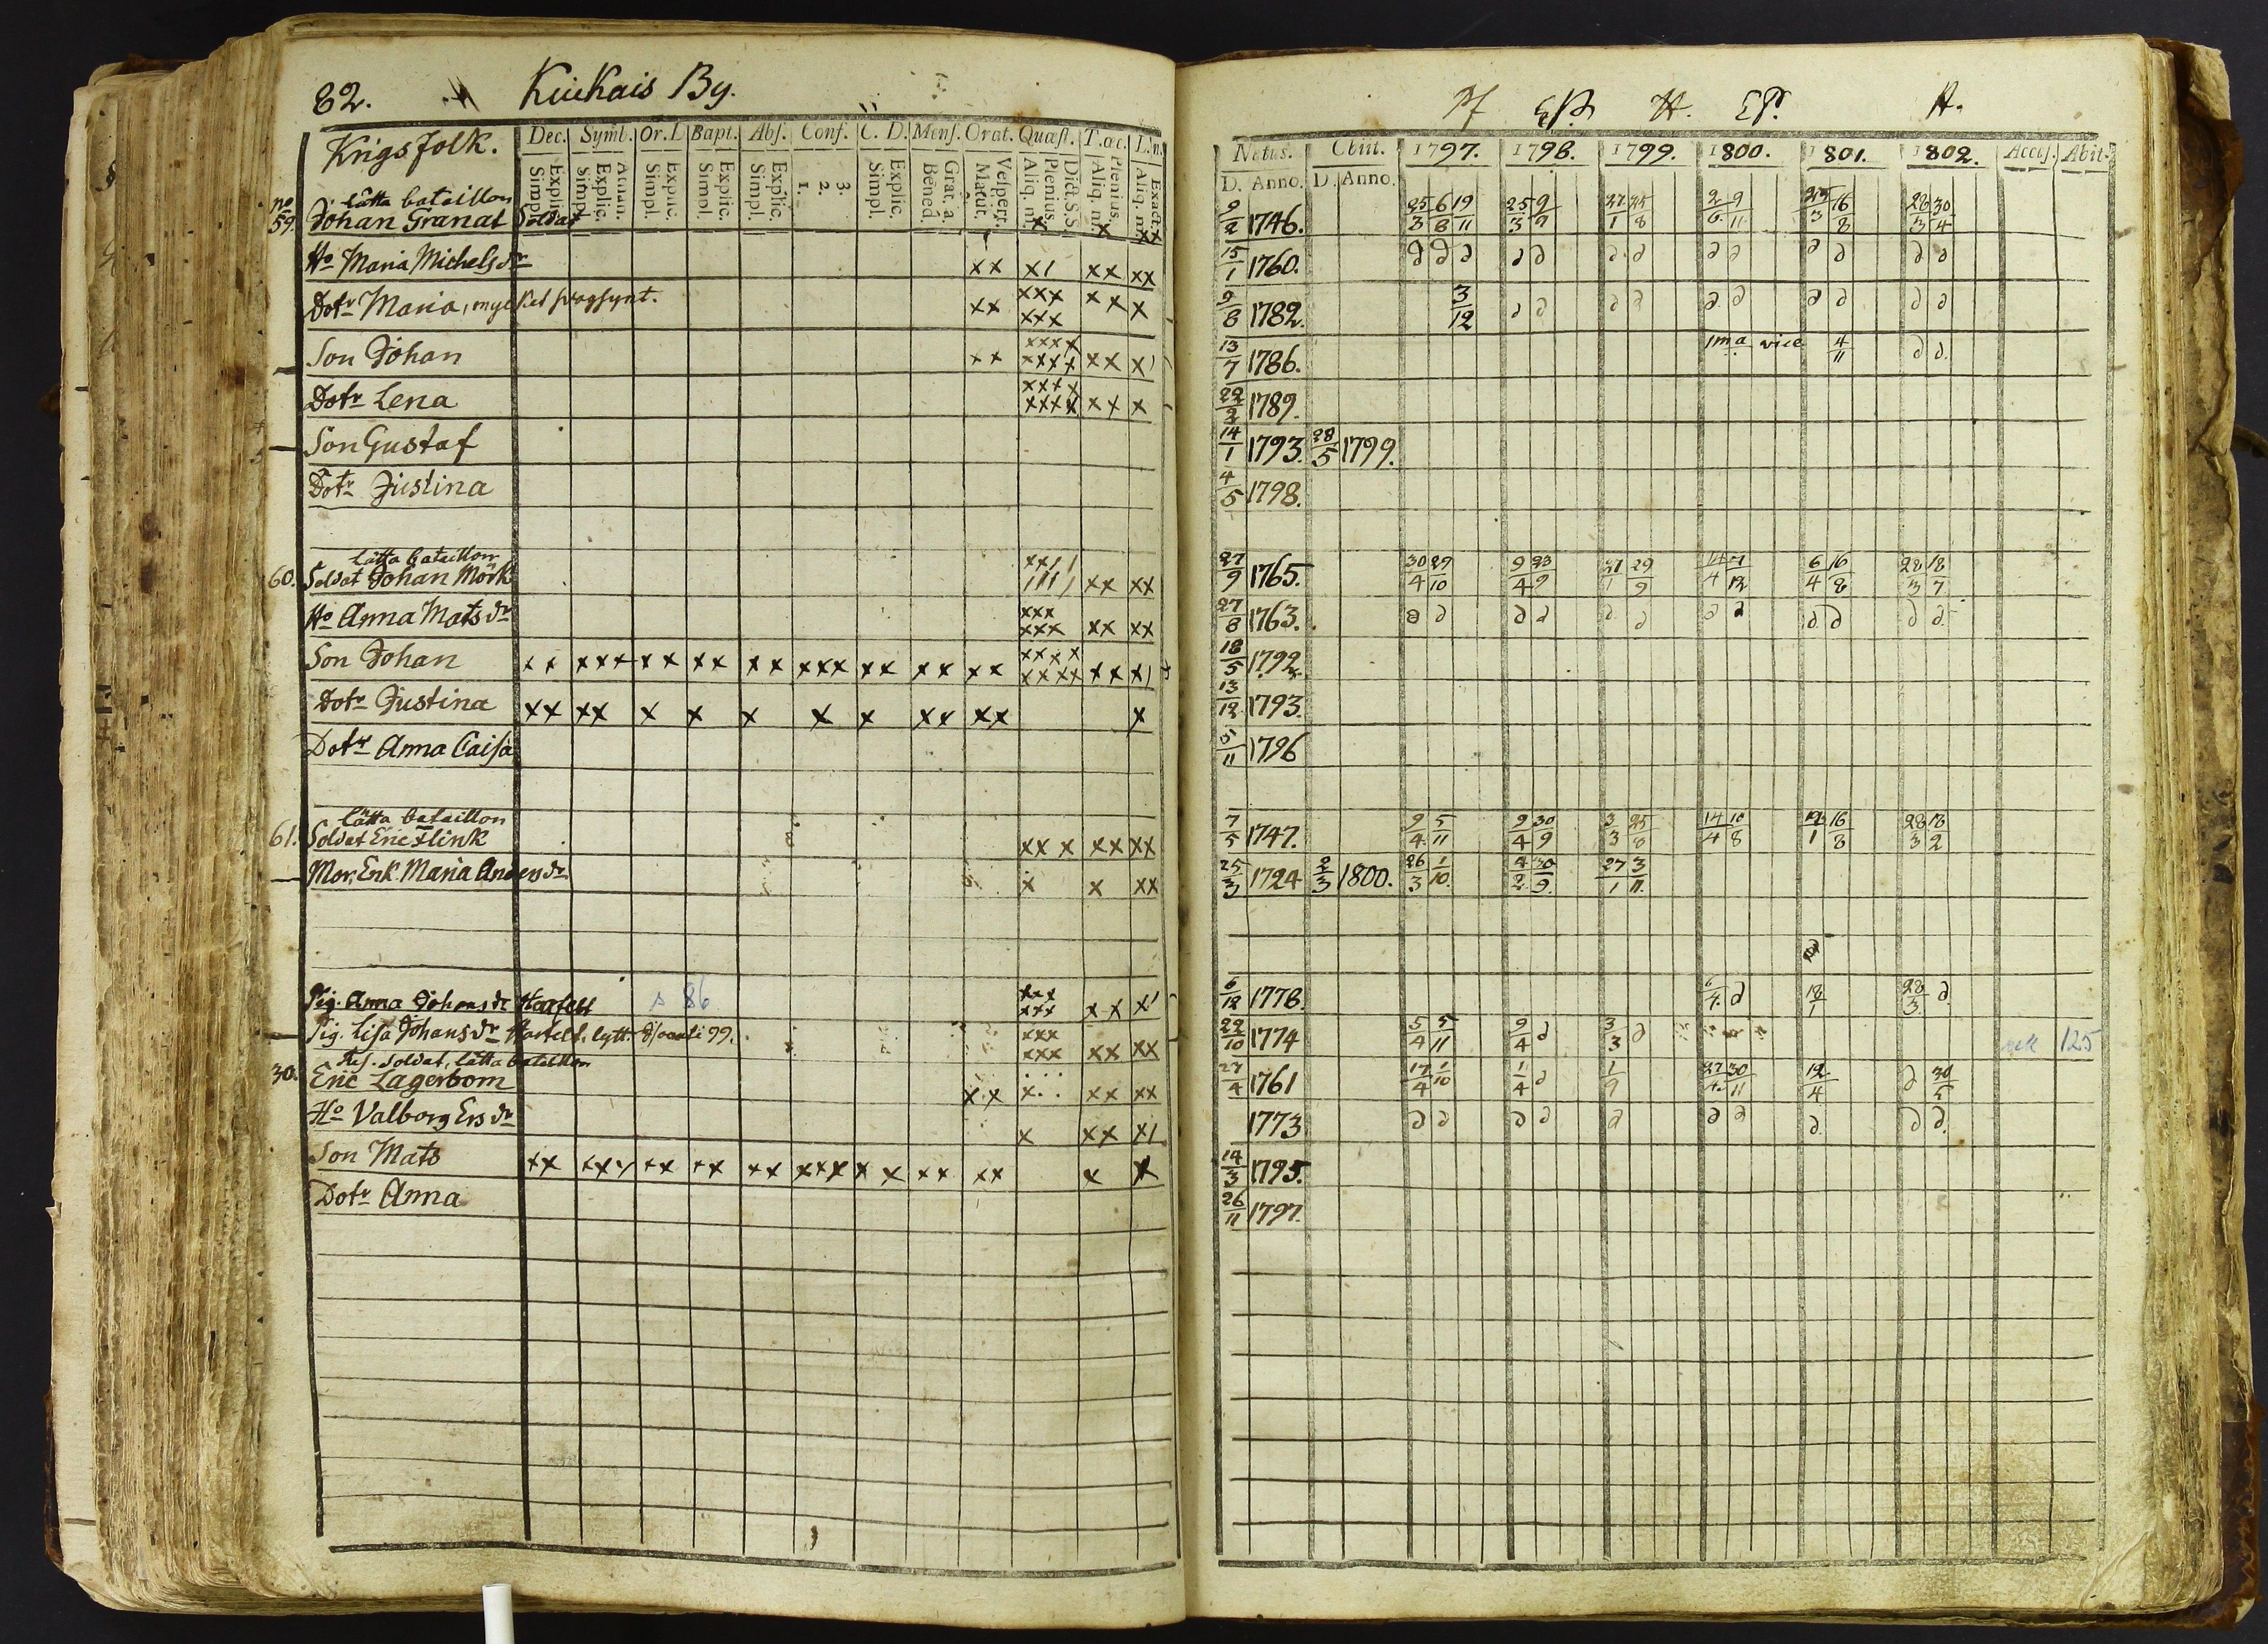 82. Kiukais By.
Krigsfolk. Dec. Symb. Or. D Bapt. Abs. Conf. C. D. Mens. Orat. Quæst. T. œc. L. n.
Simpl. Explic. Simpl. Explic. Athan. Simpl. Explic. Simpl. Explic. Simpl. Explic. 1. 2. 3. Simpl. Explic. Bened. Grat. a. Matut. Vespert. Aliq. m. Plenius. Dict. S. S. Aliq. m. Plenius. Aliq. m. Exact.
lätta bataillon
No 59. Johan Granat Soldat x x xx
Ho Maria Michels dr xx x1 xx xx
Dotr Maria, mycket svagsynt. xx xxx xxx xxx x
Son Johan xx xxxx xxxx xx x1
Dotr Lena xxxx xxxx xx x
Son Gustaf
Dotr Justina
lätta bataillon
60. Soldat Johan Mörk xx11 1111 xx xx
Ho Anna Mats dr xxx xxx xx xx
Son Johan xx xxx xx xx xx xxx xx xx xx xxxx xxxx xx x1
Dotr Justina xx xx x x x x x xx xx x
Dotr Anna Caisa
lätta bataillon
61. Soldat Eric Flink xxx xx xx
Mor, Enk. Maria Anders dr x x xx
Pig. Anna Johans dr Harfelt s 86 xxx xxx xx x1
Pig. Lisa Johans dr Harfelt. lytt. 99. xxx xxx xx xx
Res. Soldat, lätta bataillon
30. Eric Lagerbom xx x.. xx xx
Ho Valborg Ers dr x xx x1
Son Mats xx xxx xx xx xx xxx xx xx xx x x
Dotr Anna
H EP. H. EP. H.
Natus. Obiit. 1797. 1798. 1799. 1800. 1801. 1802. Access. Abit.
D. Anno. D. Anno.
9/2 1746. 25/3 6/8 19/11 25/3 9/9 27/1 25/8 2/6 9/11 25/3 16/8 28/3 30/4
15/1 1760. d d d d d d d d d d d d d
9/8 1782. 3/12 d d d d d d d d d d
13/7 1786. 1ma vice 4/11 d d.
22/2 1789.
14/1 1793. 28/5 1799.
4/5 1798.
27/9 1765. 30/4 29/10 9/4 23/9 27/1 29/9 14/4 7/12 6/4 16/8 28/3 18/7
27/8 1763. d d d d d d d d d d d d
18/5 1792.
13/12 1793.
5/11 1796
7/5 1747. 9/4 5/11 9/4 30/9 3/3 25/8 14/4 10/8 12/1 16/8 28/3 18/2
25/3 1724 2/3 1800. 26/3 1/10. 4/2 30/9. 27/1 3/11.
d
6/12 1778. 6/4 d 18/1 28/3 d
22/10 1774 5/4 5/11 9/4 d 3/3 d 125
27/4 1761 17/4 1/10 1/4 d 1/9 27/4 30/11 12/4 d 30/5
1773 d d d d d d d d. d d.
14/3 1795.
26/11 1797.